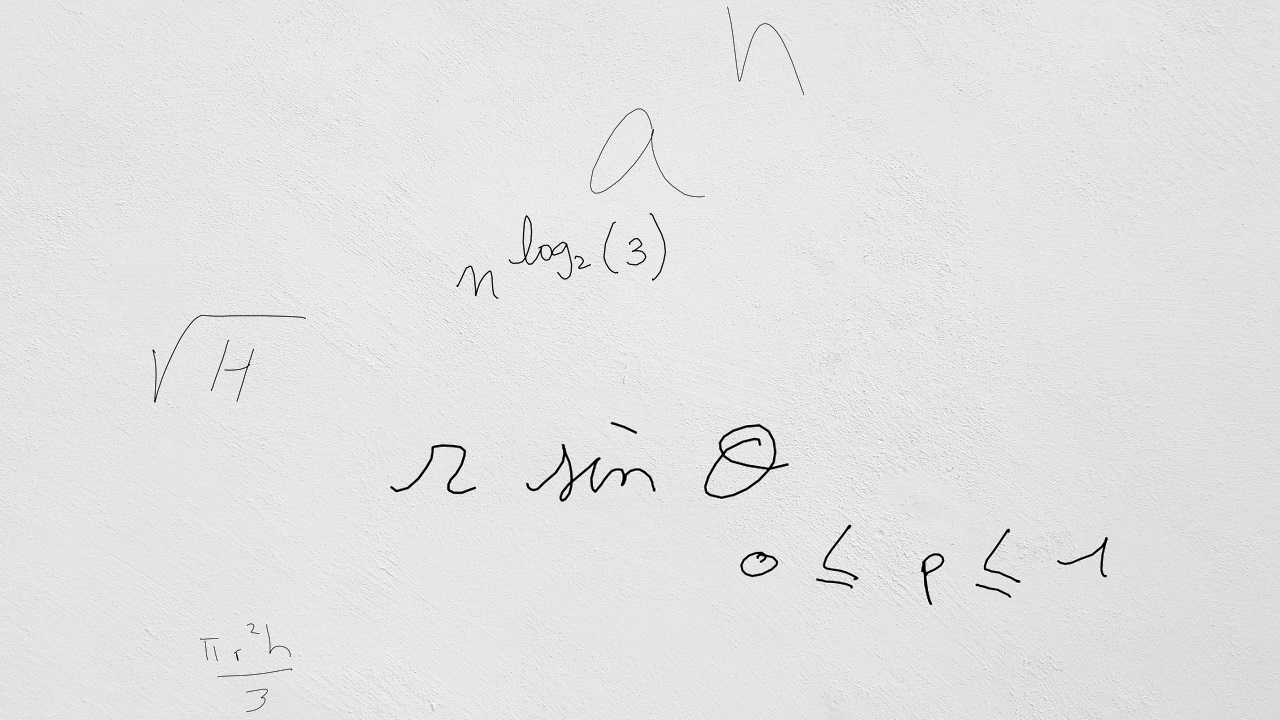 a^n
n^{log_2(3)}
\sqrt{H}
r sin θ
0 ≤ p ≤ 1
\frac{πr^2h}{3}